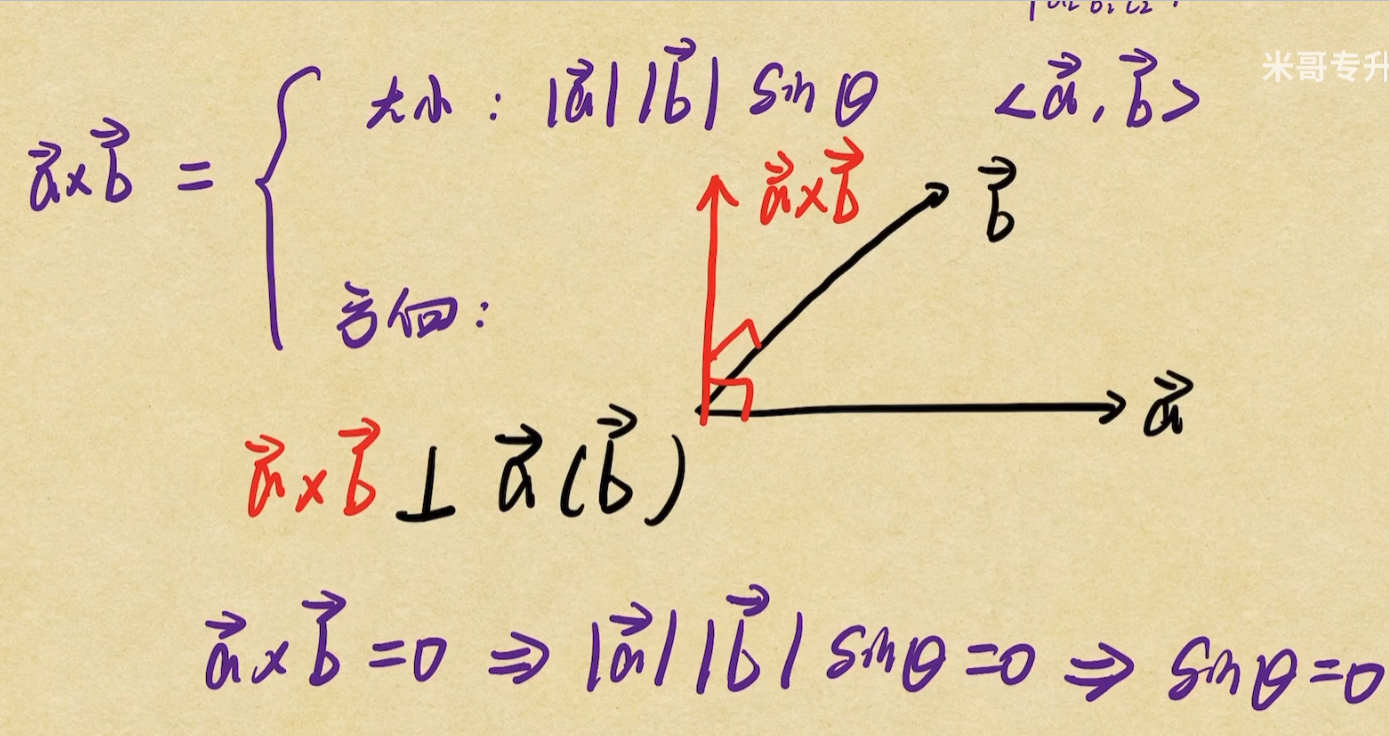 米哥专升
大小: |a⃗||b⃗| sinθ <a⃗, b⃗>
a⃗×b⃗ =
a⃗×b⃗
b⃗
方向:
a⃗
a⃗×b⃗ ⊥ a⃗(b⃗)
a⃗×b⃗ =0 ⇒ |a⃗||b⃗| sinθ=0 ⇒ sinθ=0